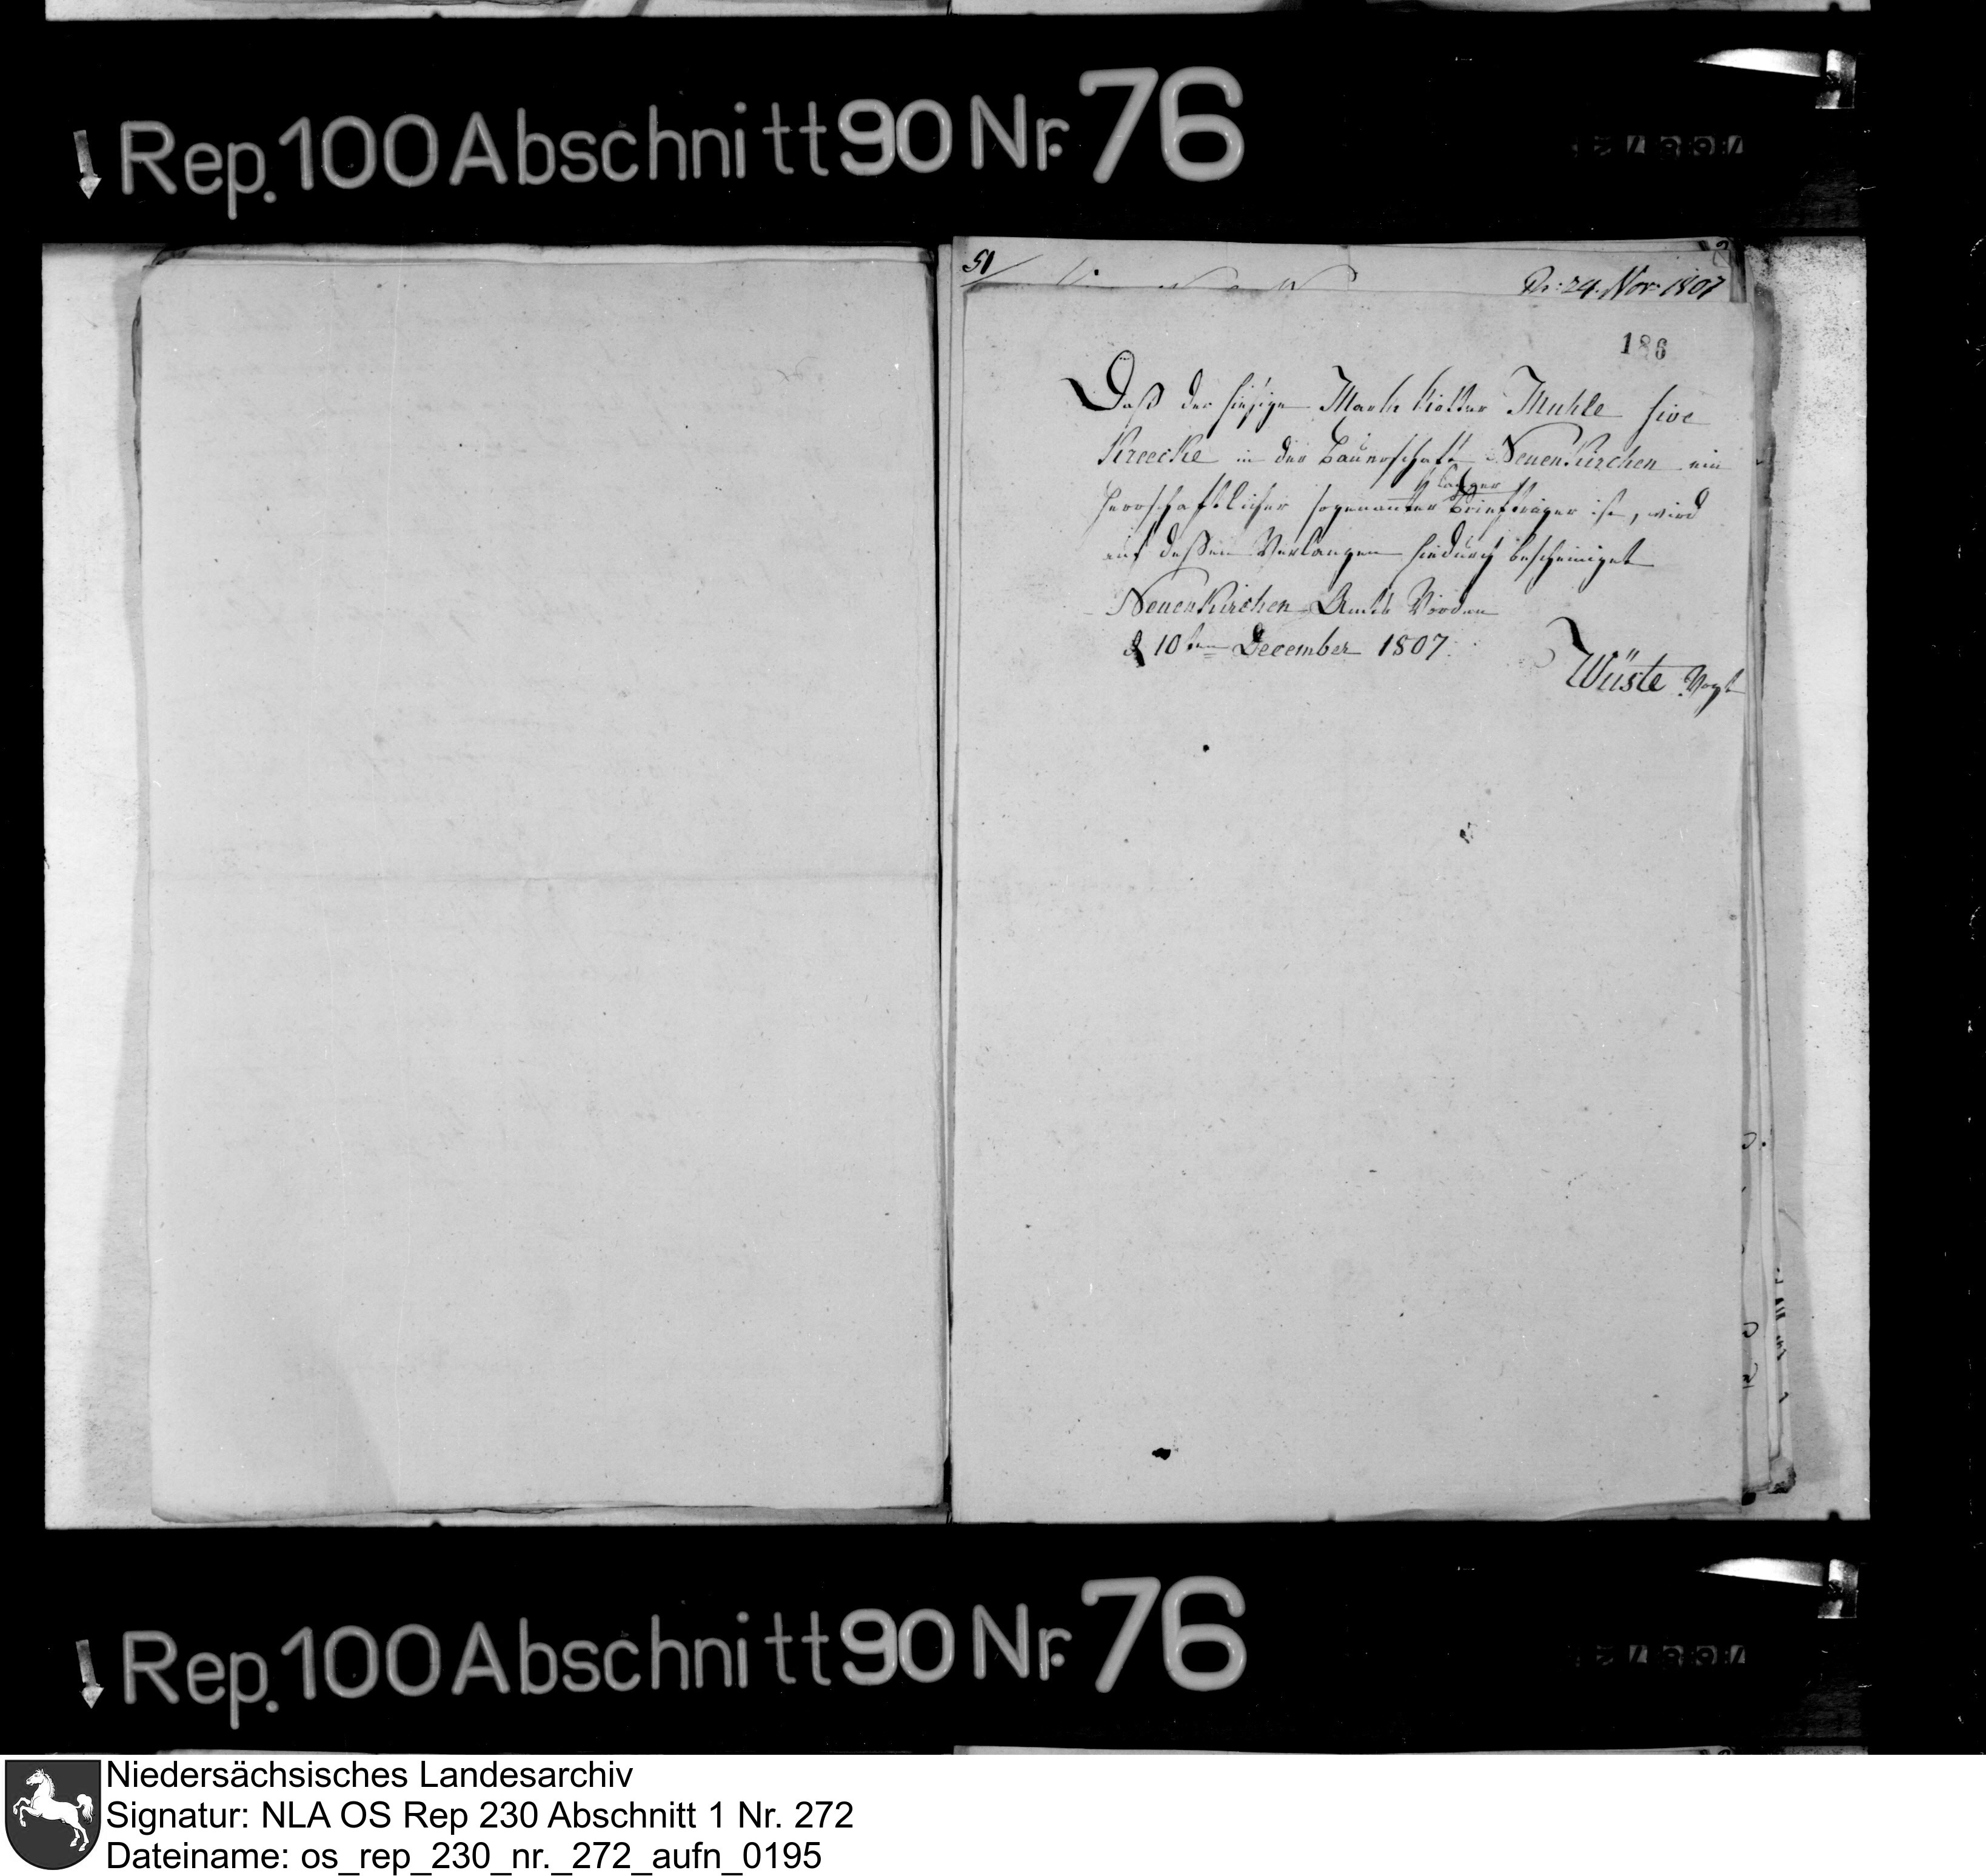 Rep. 100 Abschnitt 90 Nr. 76
51/
Pr: 24. Nov: 1807
186
Daß der hiesige Mark Kötter Muhle sive
Kreecke in der Bauerschaft Neuenkirchen ein
herrschaftlicher sogenannter langer Briefträger ist, wird
auf deßen Verlangen hiedurch bescheiniget
Neuenkirchen Amts Vörden
d 10ten December 1807.
Wüste Vogt
Rep. 100 Abschnitt 90 Nr. 76
Niedersächsisches Landesarchiv
Signatur: NLA OS Rep 230 Abschnitt 1 Nr. 272
Dateiname: os_rep_230_nr._272_aufn_0195